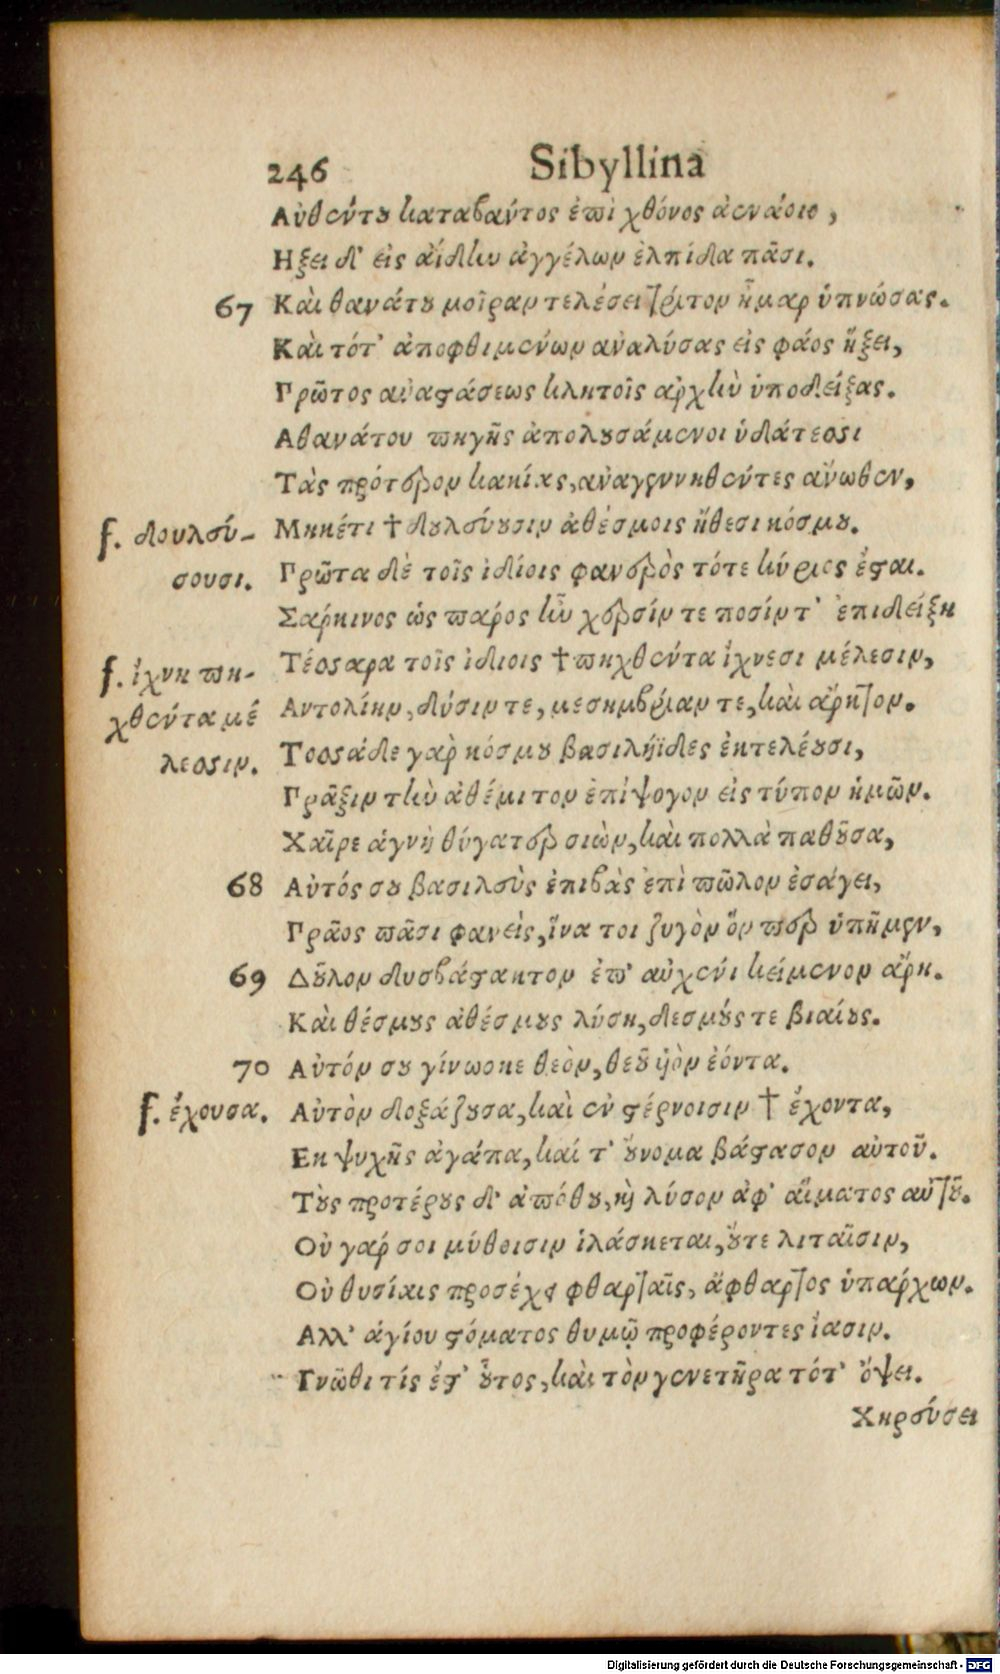 246 Sibyllina
Αὐθέντου καταβάντος ἐπὶ χθόνος ἀενάοιο,
Ηξει δ' εἰς ἀΐδην ἀγγέλων ἐλπίδα πᾶσι.
67 Καὶ θανάτου μοῖραν τελέσει τρίτον ἦμαρ ὑπνώσας.
Καὶ τότ' ἀποφθιμένων ἀναλύσας εἰς φάος ἥξει,
Πρῶτος ἀναστάσεως κλητοῖς ἀρχὴν ὑποδείξας.
Αθανάτου πηγῆς ἀπολουσάμενοι ὑδάτεσσι
Τὰς πρότερον κακίας, ἀναγεννηθέντες ἄνωθεν,
f. δουλεύ- Μηκέτι † δουλεύουσιν ἀθέσμοις ἤθεσι κόσμου.
σουσι. Πρῶτα δὲ τοῖς ἰδίοις φανερὸς τότε κύριος ἔσται.
Σάρκινος ὡς πάρος ἦν χερσίν τε ποσίν τ' ἐπιδείξη
f. ἴχνη πη- Τέσσαρα τοῖς ἰδίοις † πηχθέντα ἴχνεσι μέλεσιν,
χθέντα μέ Αντολίην, δύσιν τε, μεσημβρίαν τε, καὶ ἄρκτον.
λεσσιν. Τοσσάδε γὰρ κόσμου βασιλήϊδες ἐκτελέουσι,
Πρᾶξιν τὴν ἀθέμιτον ἐπίψογον εἰς τύπον ἡμῶν.
Χαῖρε ἁγνὴ θύγατερ σιὼν, καὶ πολλὰ παθοῦσα,
68 Αὐτός σου βασιλεὺς ἐπιβὰς ἐπὶ πῶλον ἐσάγει,
Πρᾶος πᾶσι φανεὶς, ἵνα τοι ζυγὸν ὅν περ ὑπῆμεν,
69 Δοῦλον δυσβάστακτον ἐπ' αὐχένι κείμενον ἄρη.
Καὶ θέσμους ἀθέσμους λύση, δεσμούς τε βιαίους.
70 Αὐτόν σου γίνωσκε θεὸν, θεοῦ υἱὸν ἐόντα.
f. ἔχουσα. Αὐτὸν δοξάζουσα, καὶ ἐν στέρνοισιν † ἔχοντα,
Εκ ψυχῆς ἀγάπα, καί τ' οὔνομα βάστασον αὐτοῦ.
Τοὺς προτέρους δ' ἀπόθου, καὶ λύσον ἀφ' αἵματος αὐτοῦ.
Οὐ γάρ σοι μύθοισιν ἱλάσκεται, οὔτε λιταῖσιν,
Οὐ θυσίαις προσέχει φθαρταῖς, ἄφθαρτος ὑπάρχων.
Αλλ' ἁγίου στόματος θυμῷ προφέροντες ἴασιν.
Γνῶθι τίς ἔστ' οὗτος, καὶ τὸν γενετῆρα τότ' ὄψει.
Χηρεύσει
Digitalisierung gefördert durch die Deutsche Forschungsgemeinschaft - DFG